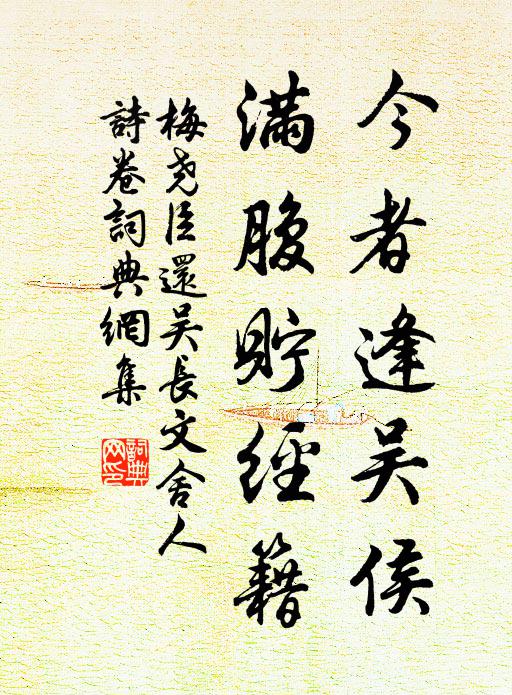 今者逢吴侯
滿腹貯經籍
梅尧臣還吴長文舍人
詩卷詞典網集
詞典网印